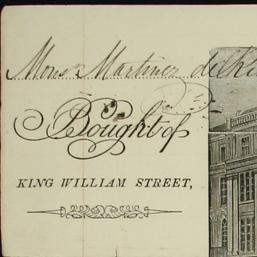 Mons Martinez de
Bought of
KING WILLIAM STREET,